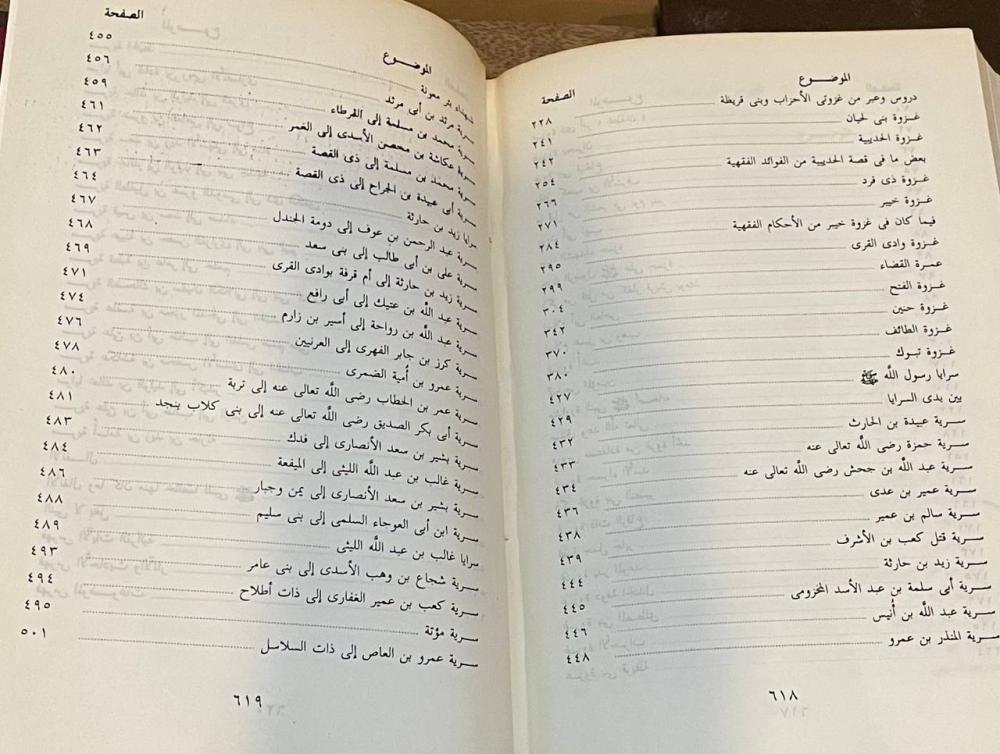 الموضوع الصفحة
دروس وعبر من غزوتى الأحزاب وبنى قريظة ٢٢٨
غزوة بنى لحيان ٢٤١
غزوة الحديبية ٢٤٢
بعض ما فى قصة الحديبية من الفوائد الفقهية ٢٥٤
غزوة ذى قرد ٢٦٦
غزوة خيبر ٢٧١
فيما كان فى غزوة خيبر من الأحكام الفقهية ٢٨٤
غزوة وادى القرى ٢٩٥
عمرة القضاء ٢٩٩
غزوة الفتح ٣٠٤
غزوة حنين ٣٤٢
غزوة الطائف ٣٧٠
غزوة تبوك ٣٨٠
سرايا رسول اللَّه ﷺ ٤٢٧
بين يدى السرايا ٤٢٩
سرية عبيدة بن الحارث ٤٣٢
سرية حمزة رضى اللَّه تعالى عنه ٤٣٣
سرية عبد اللَّه بن جحش رضى اللَّه تعالى عنه ٤٣٤
سرية عمير بن عدى ٤٣٦
سرية سالم بن عمير ٤٣٨
سرية قتل كعب بن الأشرف ٤٣٩
سرية زيد بن حارثة ٤٤٤
سرية أبى سلمة بن عبد الأسد المخزومى ٤٤٥
سرية عبد اللَّه بن أُنيس ٤٤٦
سرية المنذر بن عمرو ٤٤٨
٦١٨
الموضوع الصفحة
شهداء بئر معونة ٤٥٥
سرية مرثد بن أبى مرثد ٤٥٦
سرية محمد بن مسلمة إلى القرطاء ٤٥٩
سرية عكاشة بن محصن الأسدى إلى الغمر ٤٦١
سرية محمد بن مسلمة إلى ذى القصة ٤٦٢
سرية أبى عبيدة بن الجراح إلى ذى القصة ٤٦٣
سرايا زيد بن حارثة ٤٦٤
سرية عبد الرحمن بن عوف إلى دومة الجندل ٤٦٧
سرية على بن أبى طالب إلى بنى سعد ٤٦٨
سرية زيد بن حارثة إلى أم قرفة بوادى القرى ٤٦٩
سرية عبد اللَّه بن عتيك إلى أبى رافع ٤٧١
سرية عبد اللَّه بن رواحة إلى أسير بن زارم ٤٧٤
سرية كرز بن جابر الفهرى إلى العرنيين ٤٧٦
سرية عمرو بن أُمية الضمرى ٤٧٨
سرية عمر بن الخطاب رضى اللَّه تعالى عنه إلى تربة ٤٨٠
سرية أبى بكر الصديق رضى اللَّه تعالى عنه إلى بنى كلاب بنجد ٤٨١
سرية بشير بن سعد الأنصارى إلى فدك ٤٨٣
سرية غالب بن عبد اللَّه الليثى إلى الميفعة ٤٨٤
سرية بشير بن سعد الأنصارى إلى يمن وجبار ٤٨٦
سرية ابن أبى العوجاء السلمى إلى بنى سليم ٤٨٨
سرايا غالب بن عبد اللَّه الليثى ٤٨٩
سرية شجاع بن وهب الأسدى إلى بنى عامر ٤٩٣
سرية كعب بن عمير الغفارى إلى ذات أطلاح ٤٩٤
سرية مؤتة ٤٩٥
سرية عمرو بن العاص إلى ذات السلاسل ٥٠١
٦١٩